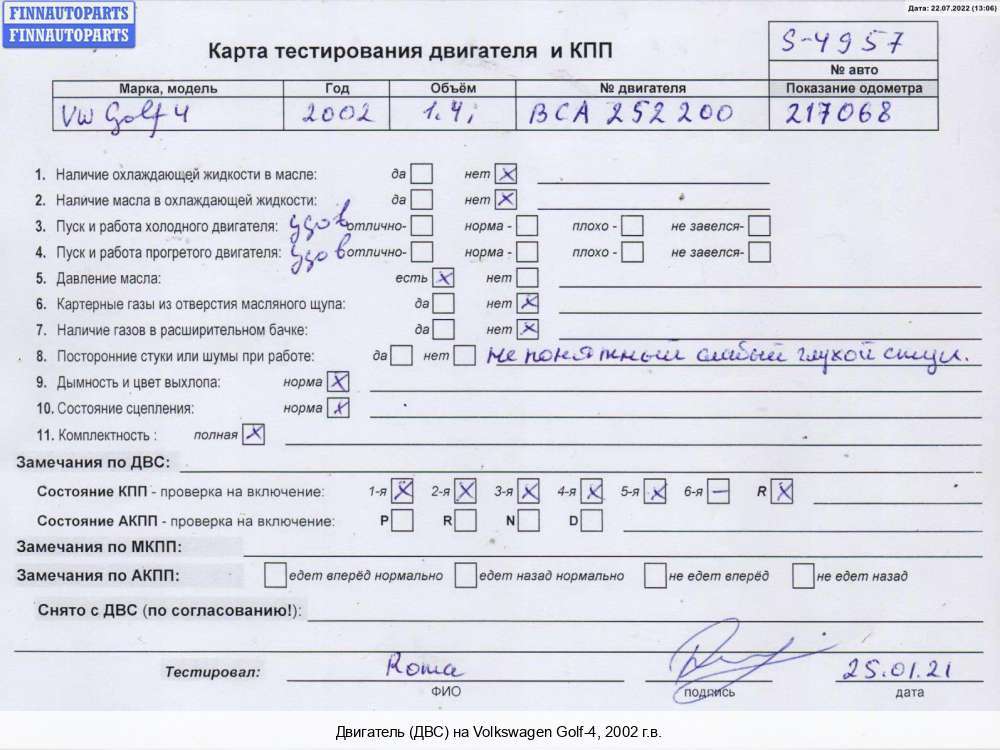 FINNAUTOPARTS
FINNAUTOPARTS
Дата: 22.07.2022 (13:06)
Карта тестирования двигателя и КПП
S-4957
№ авто
Марка, модель Год Объём № двигателя Показание одометра
VW Golf 4 2002 1.4i BCA 252 200 217068
1. Наличие охлаждающей жидкости в масле: да нет X
2. Наличие масла в охлаждающей жидкости: да нет X
3. Пуск и работа холодного двигателя: удов отлично- норма - плохо - не завелся-
4. Пуск и работа прогретого двигателя: удов отлично- норма - плохо - не завелся-
5. Давление масла: есть X нет
6. Картерные газы из отверстия масляного щупа: да нет X
7. Наличие газов в расширительном бачке: да нет X
8. Посторонние стуки или шумы при работе: да нет не понятный слабый глухой стук.
9. Дымность и цвет выхлопа: норма X
10. Состояние сцепления: норма X
11. Комплектность : полная X
Замечания по ДВС:
Состояние КПП - проверка на включение: 1-я X 2-я X 3-я X 4-я X 5-я X 6-я – R X
Состояние АКПП - проверка на включение: P R N D
Замечания по МКПП:
Замечания по АКПП: едет вперёд нормально едет назад нормально не едет вперёд не едет назад
Снято с ДВС (по согласованию!):
Тестировал: Roma 25.01.21
ФИО подпись дата
Двигатель (ДВС) на Volkswagen Golf-4, 2002 г.в.